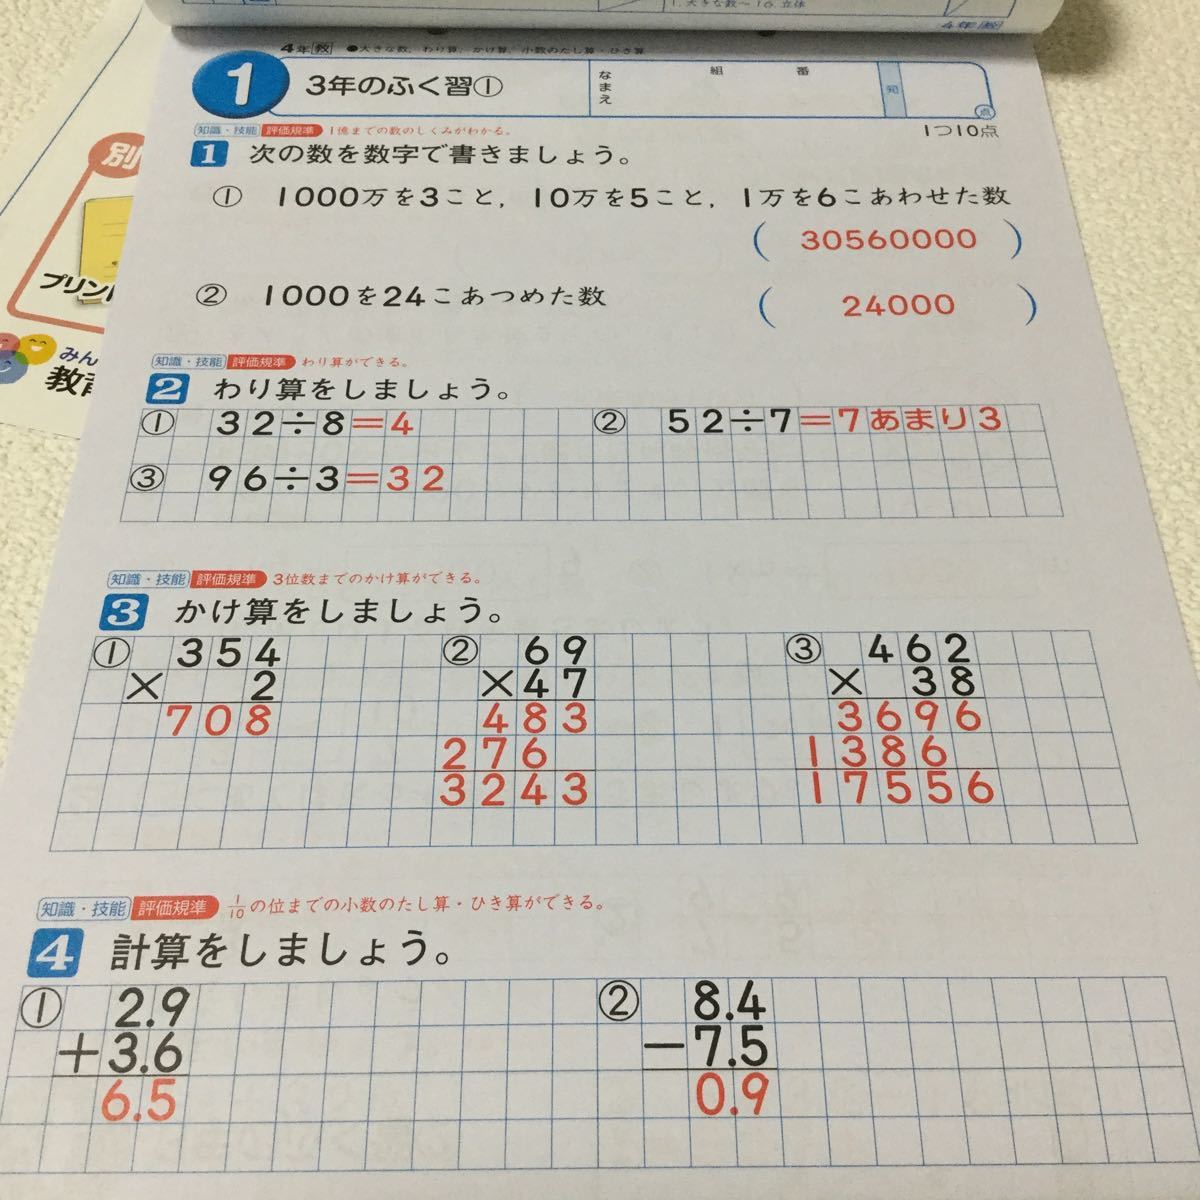 1.大きな数～16.立体
4年 教
4年 教 ●大きな数，わり算，かけ算，小数のたし算・ひき算
1 3年のふく習① なまえ 組 番 知 点
知識・技能 評価規準 1億までの数のしくみがわかる。 1つ10点
1 次の数を数字で書きましょう。
① 1000万を3こと，10万を5こと，1万を6こあわせた数
( 30560000 )
② 1000を24こあつめた数 ( 24000 )
知識・技能 評価規準 わり算ができる。
2 わり算をしましょう。
① 32÷8=4 ② 52÷7=7あまり3
③ 96÷3=32
知識・技能 評価規準 3位数までのかけ算ができる。
3 かけ算をしましょう。
① 354 ② 69 ③ 462
× 2 ×47 × 38
708 483 3696
276 1386
3243 17556
知識・技能 評価規準 1/10の位までの小数のたし算・ひき算ができる。
4 計算をしましょう。
① 2.9 ② 8.4
+3.6 −7.5
6.5 0.9
別
プリン
みん
教育